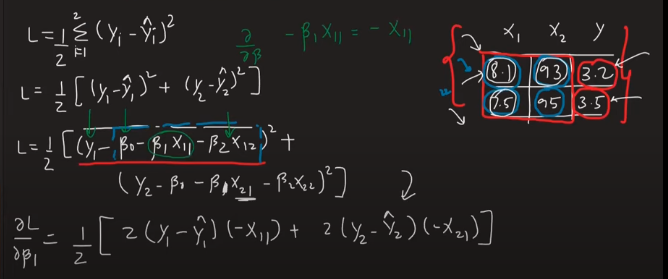 L = 1/2 Σ_{i=1}^{2} (yᵢ - ŷᵢ)²
∂/∂β - β₁ X₁₁ = - X₁₁
L = 1/2 [(y₁ - ŷ₁)² + (y₂ - ŷ₂)²]
L = 1/2 [(y₁ - β₀ - β₁ X₁₁ - β₂ X₁₂)² +
(y₂ - β₀ - β₁ X₂₁ - β₂ X₂₂)²]
∂L/∂β₁ = 1/2 [2 (y₁ - ŷ₁)(-X₁₁) + 2 (y₂ - ŷ₂)(-X₂₁)]
X₁ X₂ Y
8.1 93 3.2
7.5 95 3.5